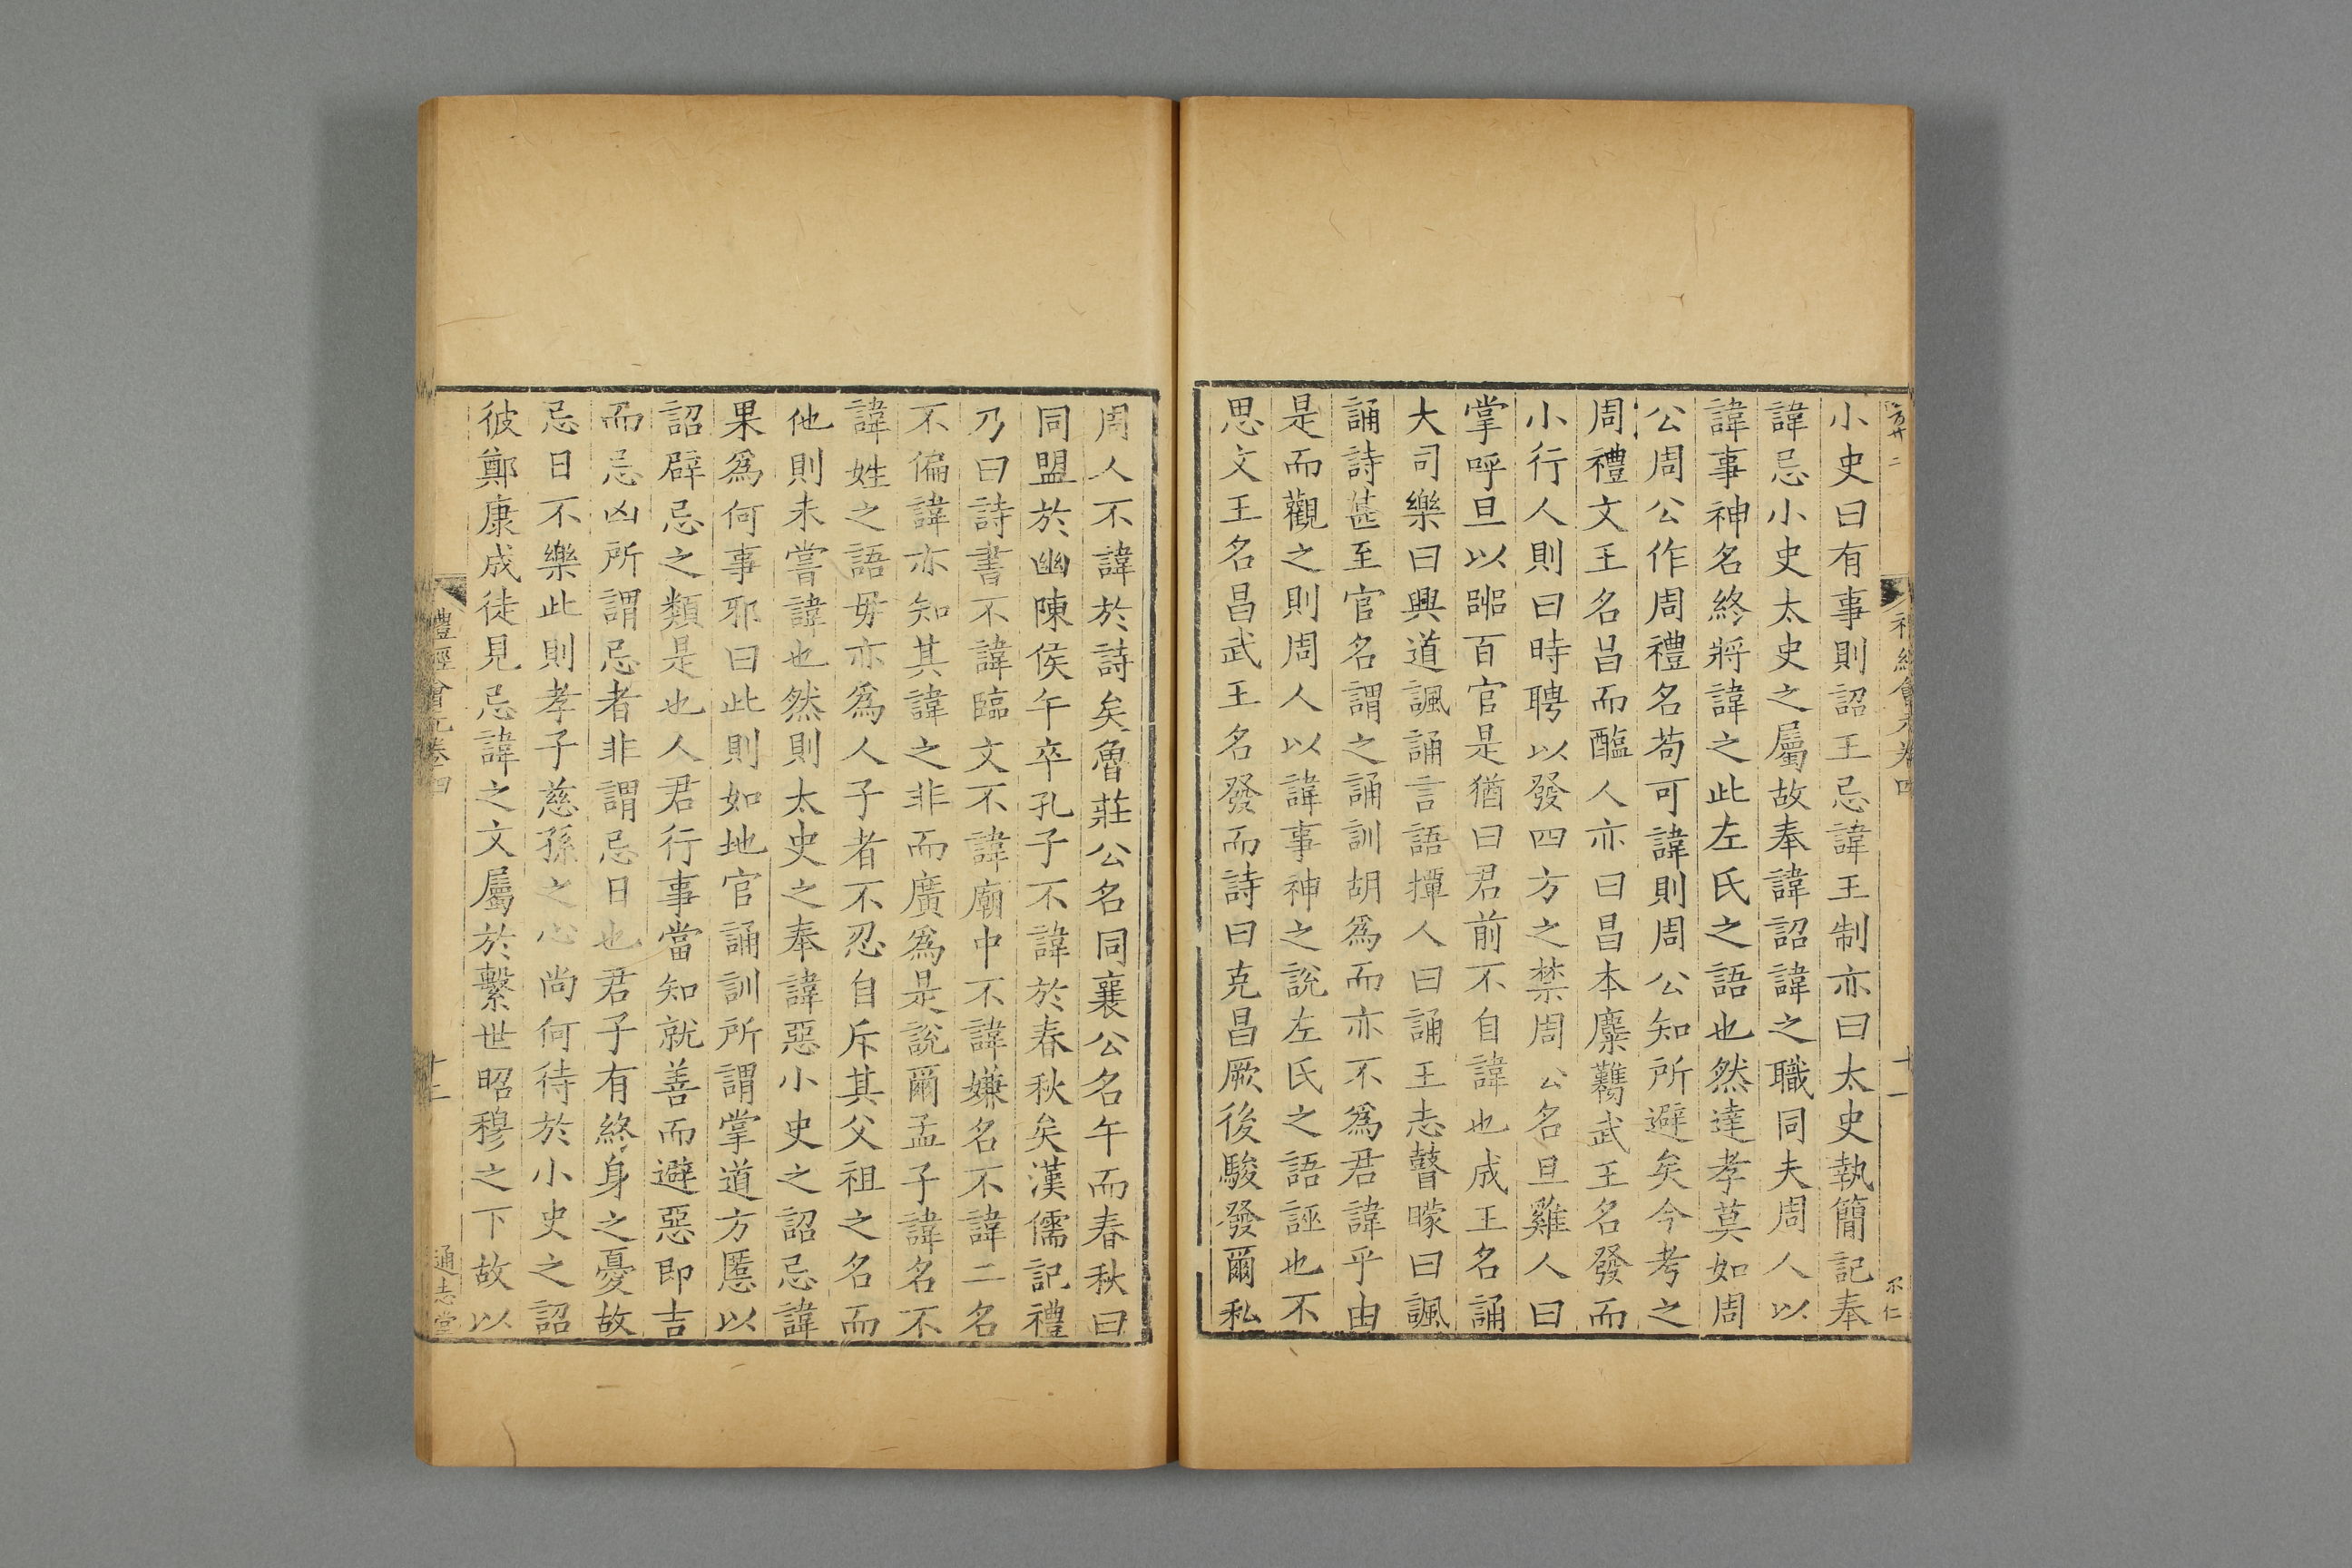 小史曰有事則詔王忌諱王制亦曰太史執簡記奉
諱忌小史太史之屬故奉諱詔諱之職同夫周人以
諱事神名終將諱之此左氏之語也然達孝莫如周
公周公作周禮名苟可諱則周公知所避矣今考之
周禮文王名昌而醢人亦曰昌本麋臡武王名發而
小行人則曰時聘以發四方之禁周公名旦雞人曰
掌呼旦以嘂百官是猶曰君前不自諱也成王名誦
大司樂曰興道諷誦言語撢人曰誦王志瞽矇曰諷
誦詩甚至官名謂之誦訓胡爲而亦不爲君諱乎由
是而觀之則周人以諱事神之說左氏之語誣也不
思文王名昌武王名發而詩曰克昌厥後駿發爾私
周人不諱於詩矣魯莊公名同襄公名午而春秋曰
同盟於幽陳侯午卒孔子不諱於春秋矣漢儒記禮
乃曰詩書不諱臨文不諱廟中不諱嫌名不諱二名
不偏諱亦知其諱之非而廣爲是說爾孟子諱名不
諱姓之語毋亦爲人子者不忍自斥其父祖之名而
他則未嘗諱也然則太史之奉諱惡小史之詔忌諱
果爲何事邪曰此則如地官誦訓所謂掌道方慝以
詔辟忌之類是也人君行事當知就善而避惡即吉
而忌凶所謂忌者非謂忌日也君子有終身之憂故
忌日不樂此則孝子慈孫之心尚何待於小史之詔
彼鄭康成徒見忌諱之文屬於繫世昭穆之下故以
禮經會元卷四
十二
通志堂